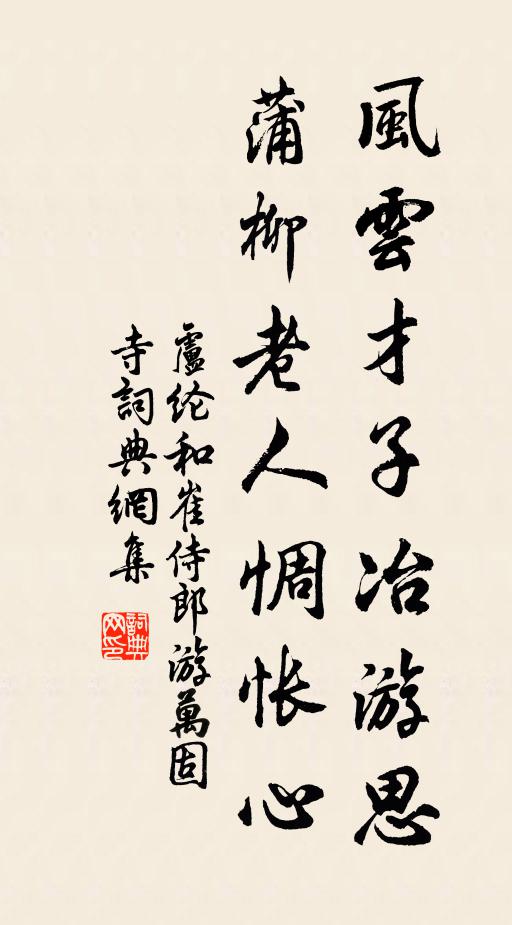 風雲才子冶游思
蒲柳老人惆怅心
盧纶和崔侍郎游萬固
寺詞典網集
詞典網印